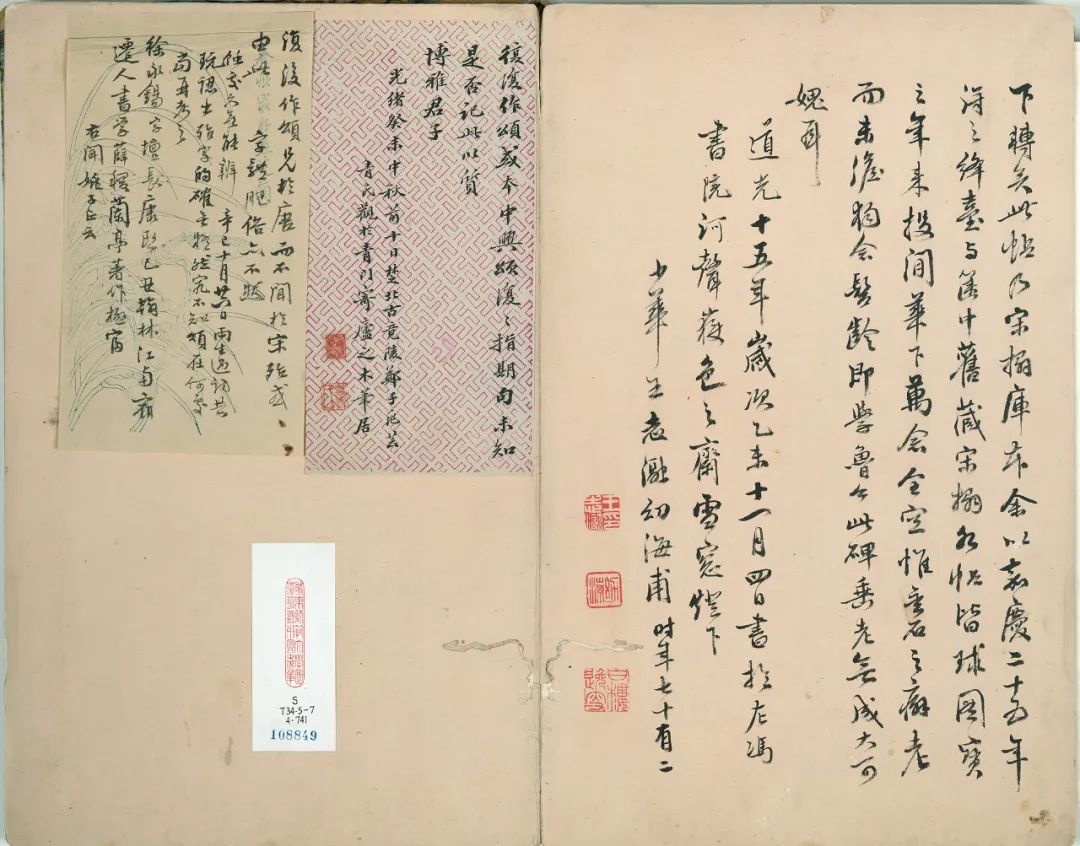 下轉矣此帖乃宋搨庫本余以嘉慶二十五年
得之絳臺與篋中舊藏宋搨各帖皆球圖寶
之年來投閒華下萬念全空惟金石之癖老
而未澹猶念髫齡即學魯公此碑垂老無成大可
媿耳
道光十五年歲次乙未十一月四日書於左馮
書院河聲嶽色之齋雪窓燈下
少華王志瀜幼海甫時年七十有二
復復作頌或本中興頌復復指期句未知
是否記此以質
博雅君子
光緒癸未中秋前十日楚北古竟陵鄭子
青氏觀於青門寄廬之木筆居
復復作頌見於唐而不聞於宋
由此
辛巳十月廿六日雨生過訪共
玩認出殆字的確無疑然究不知頌在何處
尚再考之
徐永錫字壇長康熙己丑翰林江南
遷人書學薛稷蘭亭著作極富
右聞姚子正云
S
T34·5-7
4·741
108849